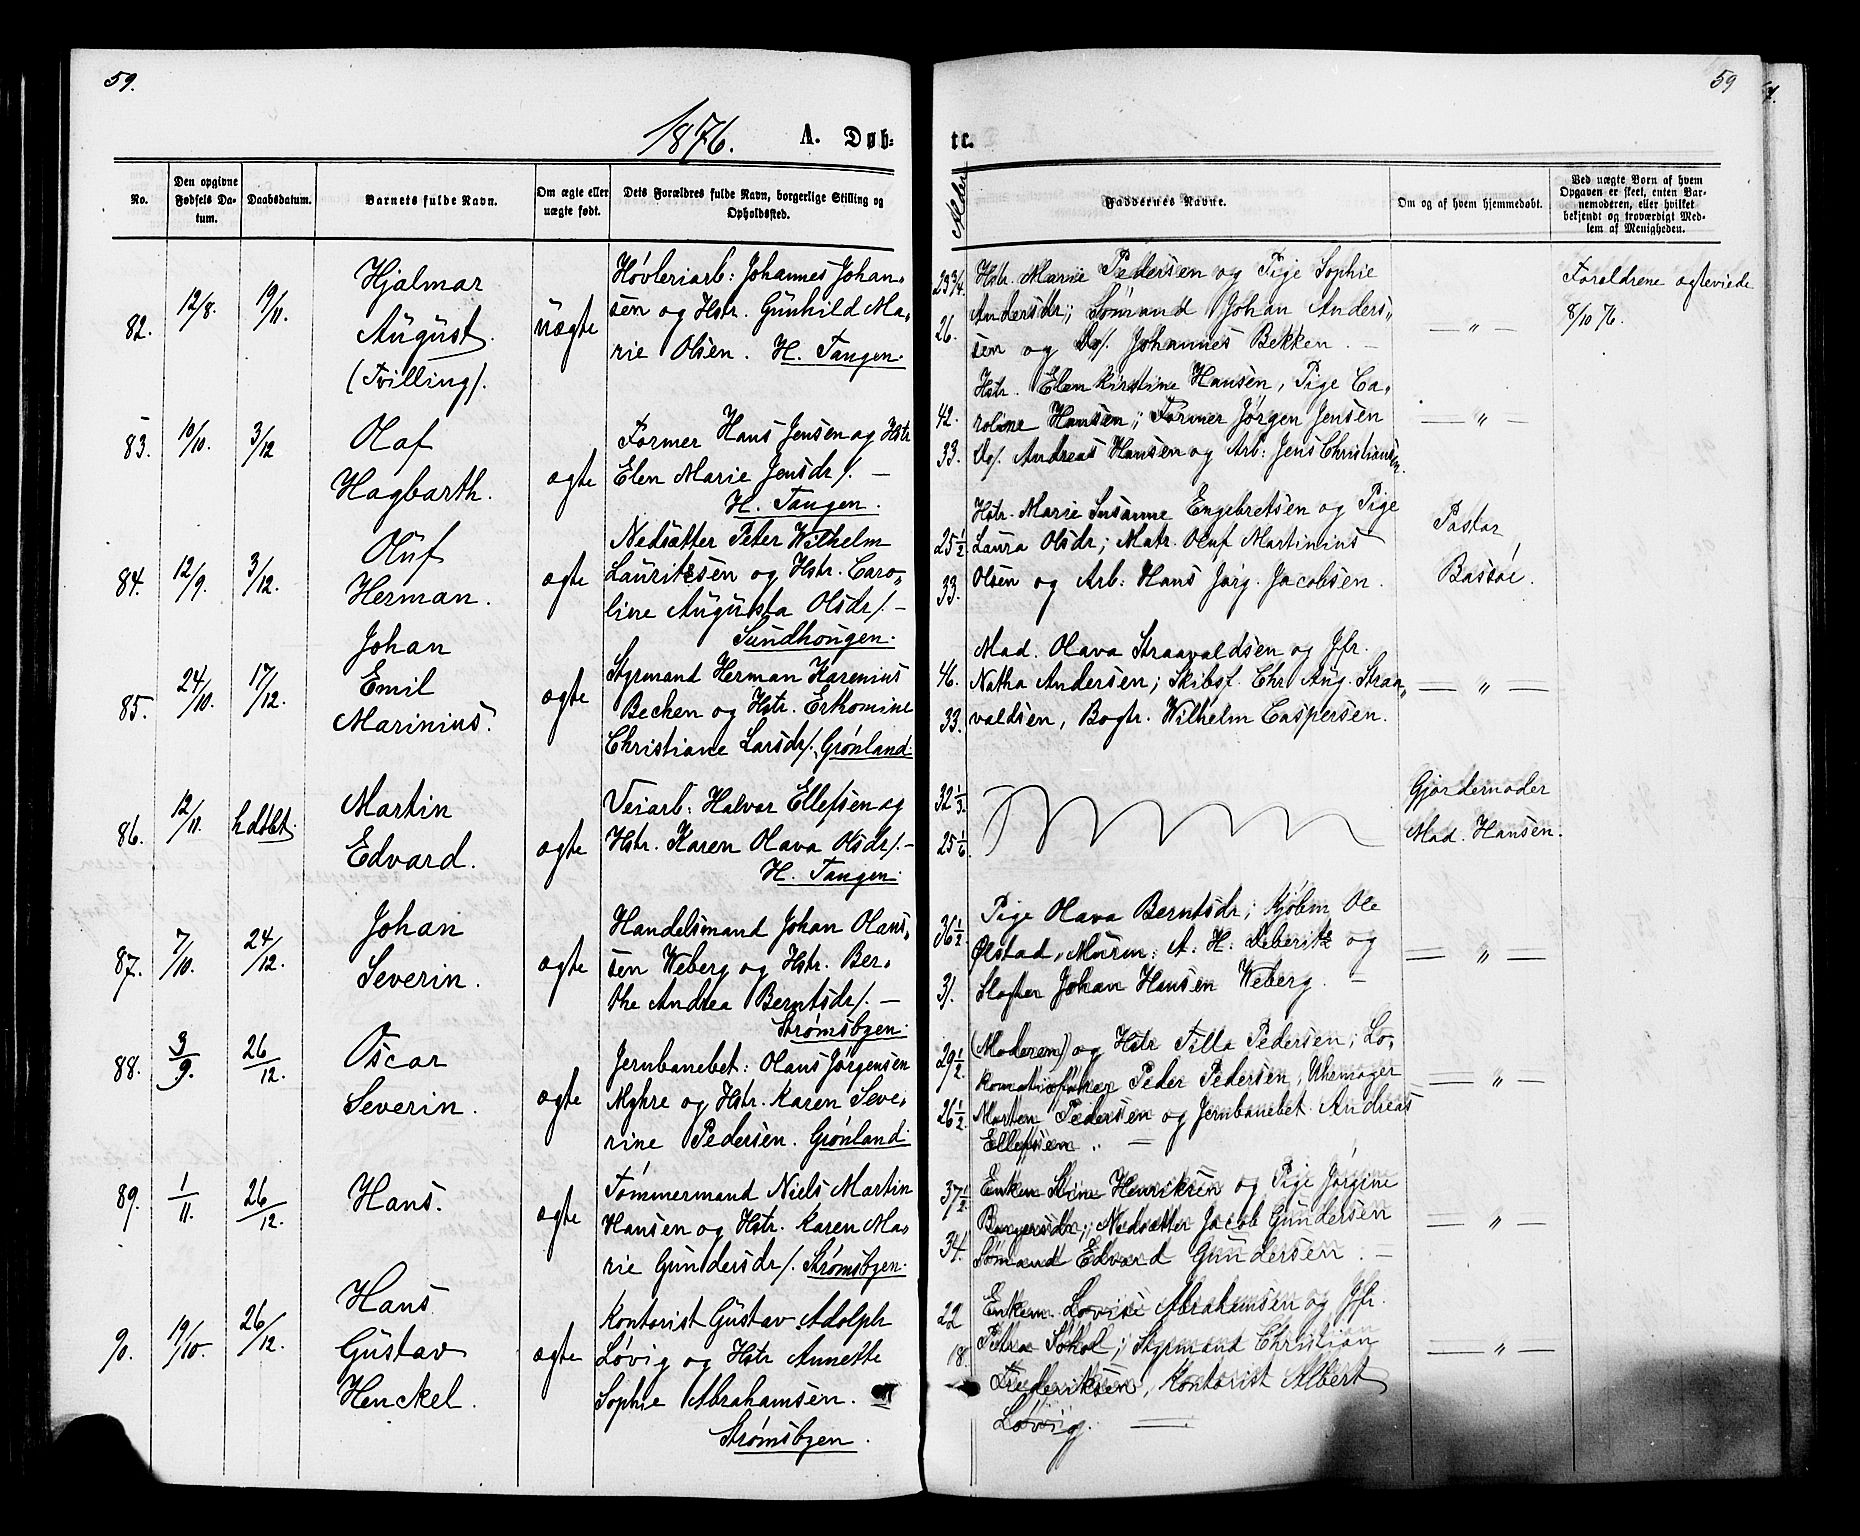 59.
1876. A. Døb:
No.
Den opgivne Fødsels Datum.
Daabsdatum.
Barnets fulde Navn.
Om ægte eller uægte født.
Dets Forældres fulde Navn, borgerlige Stilling og Opholdssted.
82.
12/8.
19/11.
Hjalmar
August.
(Tvilling).
uægte
Høvleriarb: Johannes Johan-
sen og Hstr. Gunhild Ma-
rie Olsen. H. Tangen.
83.
10/10.
3/12
Olaf
Hagbarth.
ægte
Former Hans Jensen og Hstr
Elen Marie Jensdr/. —
H. Tangen.
84.
12/9.
3/12.
Oluf
Herman.
ægte
Nedsætter Peter Wilhelm
Lauritzsen og Hstr. Caro-
line Augusta Olsdr/. —
Sundhougen.
85.
24/10.
17/12.
Johan
Emil
Marinius.
ægte
Styrmand Herman Karenius
Becken og Hstr. Erkomine
Christiane Larsdr/. Grønland.
86.
12/11.
hdøbt.
Martin
Edvard.
ægte
Veiarb: Halvor Ellefsen og
Hstr. Karen Olava Olsdr/. —
H. Tangen.
87.
7/10.
24/12.
Johan
Severin.
ægte
Handelsmand Johan Olaus-
sen Weberg og Hstr. Ber-
the Andrea Berntsdr/. —
Strømsbyen.
88.
3/9.
26/12.
Oscar
Severin.
ægte
Jernbanebet: Olaus Jørgensen
Myhre og Hstr. Karen Seve-
rine Pedersen. Grønland.
89.
1/11.
26/12.
Hans.
ægte
Tømmermand Niels Martin
Hansen og Hstr. Karen Ma-
rie Gundersdr/. Strømsbyen.
90.
19/10.
26/12.
Hans
Gustav
Henckel.
ægte
Kontorist Gustav Adolph
Løvig og Hstr Annette
Sophie Abrahamsen. —
Strømsbyen.
59
te.
Alder
Faddernes Navne.
Om og af hvem hjemmedøbt.
Ved uægte Barn af hvem
Opgaven er skeet, enten Bar-
nemoderen, eller hvilket
bekjendt og troværdigt Med-
lem af Menigheden.
23 3/4.
26.
Hstr. Marie Pedersen og Pige Sophie
Andersdr; Sømand Johan Anders-
sen og Do/. Johannes Bekken. —
— " —
Foreldrene ægteviede
8/10 76.
42.
33.
Hstr. Elen Kirstine Hansen, Pige Ca-
roline Hansen; Former Jørgen Jensen
Do/. Andreas Hansen og Arb: Jens Christiansen.
— " —
25 1/2
33.
Hstr. Marie Susanne Engebretsen og Pige
Laura Olsdr; Matr. Oluf Martinius
Olsen og Arb: Hans Jørg. Jacobsen.
Pastor
Bassøe.
46.
33.
Mad. Olava Straavaldsen og Jfr.
Natha Andersen; Skibsf. Chr Aug. Straa-
valdsen, Bogtr. Wilhelm Caspersen.
— " —
32 1/3.
25 1/6
Gjordemoder
Mad. Hansen.
36 1/2
31.
Pige Olava Berntsdr; Kjøbm Ole
Ølstad, Murm: A. H. Leberitz og
Slagter Johan Hansen Weberg. —
— " —
29 1/2
26 1/2
(Moderen) og Hstr Tilla Pedersen; Lo-
komotivfører Peder Pedersen, Uhrmager
Morten Pedersen og Jernbanebet. Andreas
Ellefsen. —
— " —
37 1/2
34.
Enken Stine Henriksen og Pige Jørgine
Nedsætter Jacob Gundersen
Sømand Edvard Gundersen. —
— " —
22
18.
Enkem. Lovise Abrahamsen og Jfr.
Petra Sokol; Styrmand Christian
Frederiksen, Kontorist Albert
Løvig. —
— " —